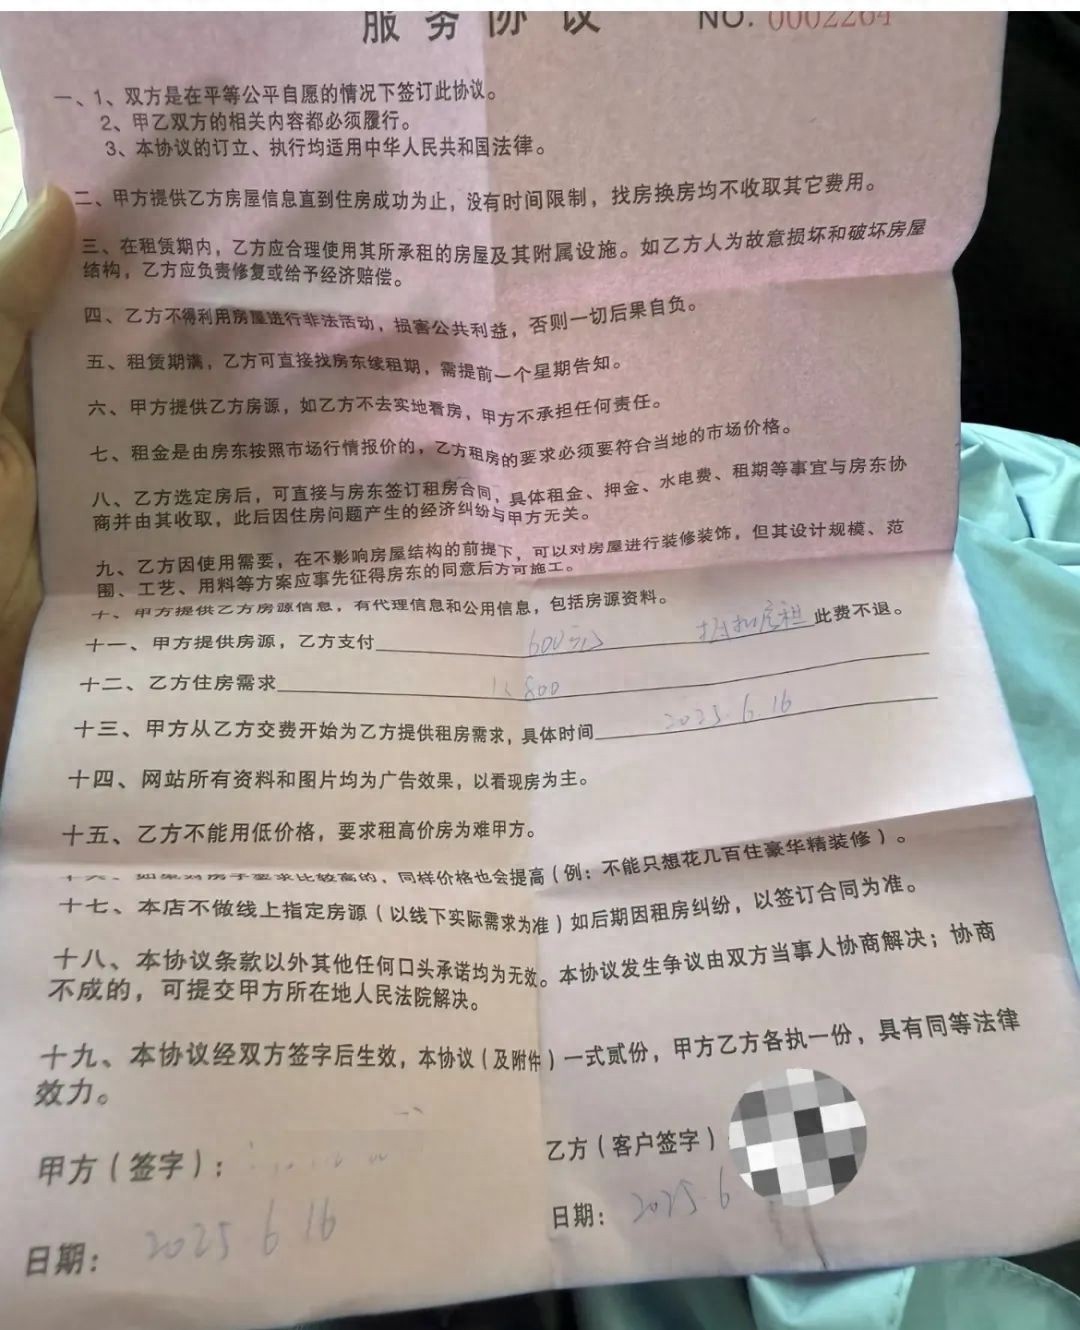 服务协议 NO. 0002264
一、1、双方是在平等公平自愿的情况下签订此协议。
2、甲乙双方的相关内容都必须履行。
3、本协议的订立、执行均适用中华人民共和国法律。
二、甲方提供乙方房屋信息直到住房成功为止，没有时间限制，找房换房均不收取其它费用。
三、在租赁期内，乙方应合理使用其所承租的房屋及其附属设施。如乙方人为故意损坏和破坏房屋
结构，乙方应负责修复或给予经济赔偿。
四、乙方不得利用房屋进行非法活动，损害公共利益，否则一切后果自负。
五、租赁期满，乙方可直接找房东续租期，需提前一个星期告知。
六、甲方提供乙方房源，如乙方不去实地看房，甲方不承担任何责任。
七、租金是由房东按照市场行情报价的，乙方租房的要求必须要符合当地的市场价格。
八、乙方选定房后，可直接与房东签订租房合同，具体租金、押金、水电费、租期等事宜与房东协
商并由其收取，此后因住房问题产生的经济纠纷与甲方无关。
九、乙方因使用需要，在不影响房屋结构的前提下，可以对房屋进行装修装饰，但其设计规模、范
围、工艺、用料等方案应事先征得房东的同意后方可施工。
十、甲方提供乙方房源信息，有代理信息和公用信息，包括房源资料。
十一、甲方提供房源，乙方支付 600元 抵扣房租 此费不退。
十二、乙方住房需求 800
十三、甲方从乙方交费开始为乙方提供租房需求，具体时间 2025.6.16
十四、网站所有资料和图片均为广告效果，以看现房为主。
十五、乙方不能用低价格，要求租高价房为难甲方。
同样价格也会提高（例：不能只想花几百住豪华精装修）。
十七、本店不做线上指定房源（以线下实际需求为准）如后期因租房纠纷，以签订合同为准。
十八、本协议条款以外其他任何口头承诺均为无效。本协议发生争议由双方当事人协商解决；协商
不成的，可提交甲方所在地人民法院解决。
十九、本协议经双方签字后生效，本协议（及附件）一式贰份，甲方乙方各执一份，具有同等法律
效力。
甲方（签字）：
乙方（客户签字）
日期： 2025 6 16
日期： 2025.6